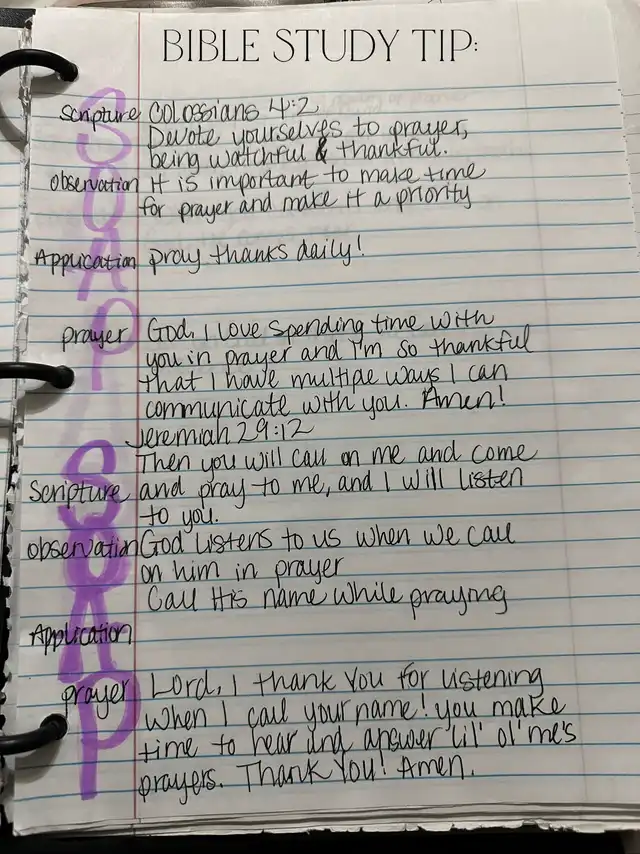 BIBLE STUDY TIP:
Scripture Colossians 4:2
Devote yourselves to prayer,
being watchful & thankful.
Observation It is important to make time
for prayer and make it a priority
Application pray thanks daily!
prayer God, I love spending time with
you in prayer and I'm so thankful
that I have multiple ways I can
communicate with you. Amen!
Jeremiah 29:12
Then you will call on me and come
Scripture and pray to me, and I will listen
to you.
Observation God listens to us when we call
on him in prayer
Call His name while praying
Application
prayer Lord, I thank you for listening
when I call your name! you make
time to hear and answer 'lil' ol' me's
prayers. Thank you! Amen.
SOAP
SOAP